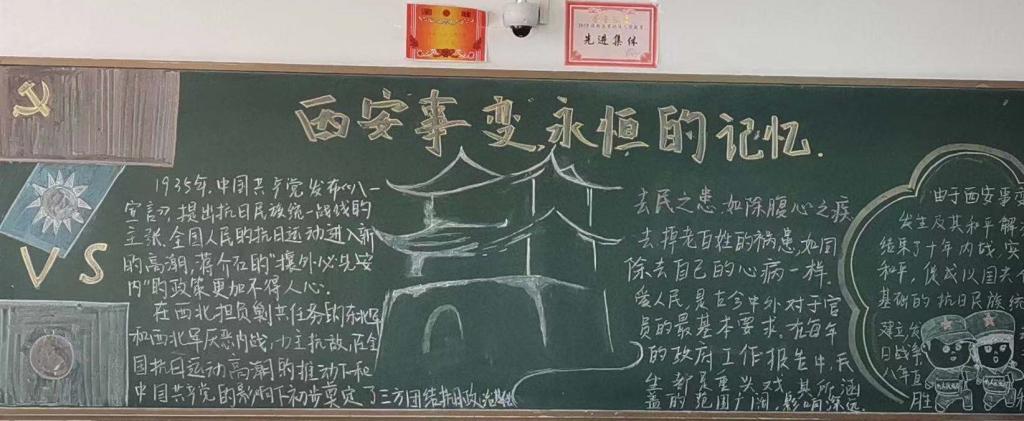 先进集体
西安事变,永恒的记忆.
VS
1935年,中国共产党发布《八一
宣言》,提出抗日民族统一战线的
主张,全国人民的抗日运动进入新
的高潮,蒋介石的"攘外必先安
内"的政策更加不得人心.
在西北担负剿共任务的东北军
和西北军厌恶内战,力主抗敌,在全
国抗日运动高潮的推动下和
中国共产党的影响下初步奠定了三方团结抗日政治
去民之患,如除腹心之疾
去掉老百姓的祸患,如同
除去自己的心病一样.
爱人民是古今中外对于官
员的最基本要求.在每年
的政府工作报告中,民
生都是重头戏.其所涵
盖的范围广阔,影响深远.
由于西安事变
发生及其和平解
结束了十年内战,实
和平,促成以国共
基础的抗日民族统
建立
日战争
八年直
胜